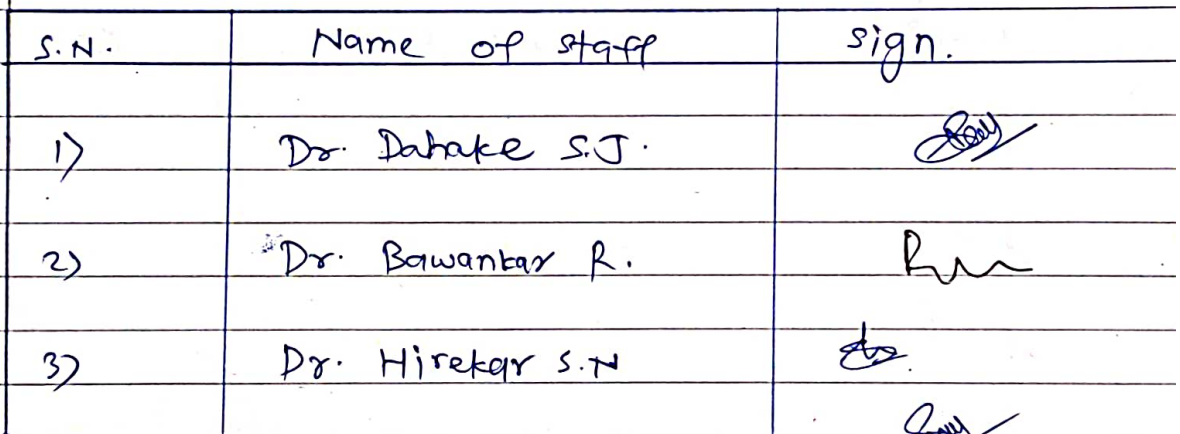 S.N. Name of staff sign.
1) Dr. Dahake S.J.
2) Dr. Bawankar R.
3) Dr. Hirekar S.N